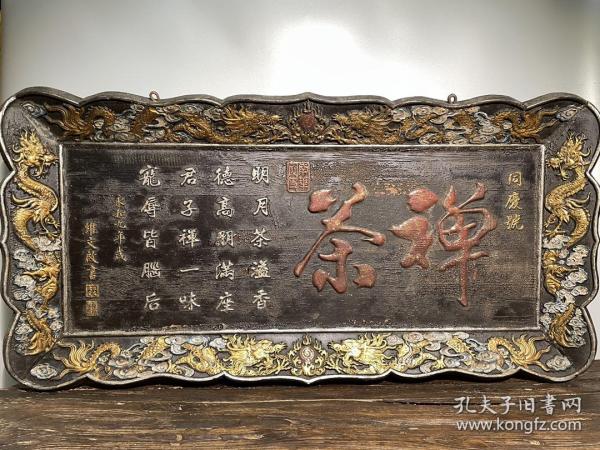 同慶號
禪茶
明月茶溢香
德高朋满座
君子禪一味
寵辱皆腦后
雍文啟書
孔夫子旧书网
www.kongfz.com